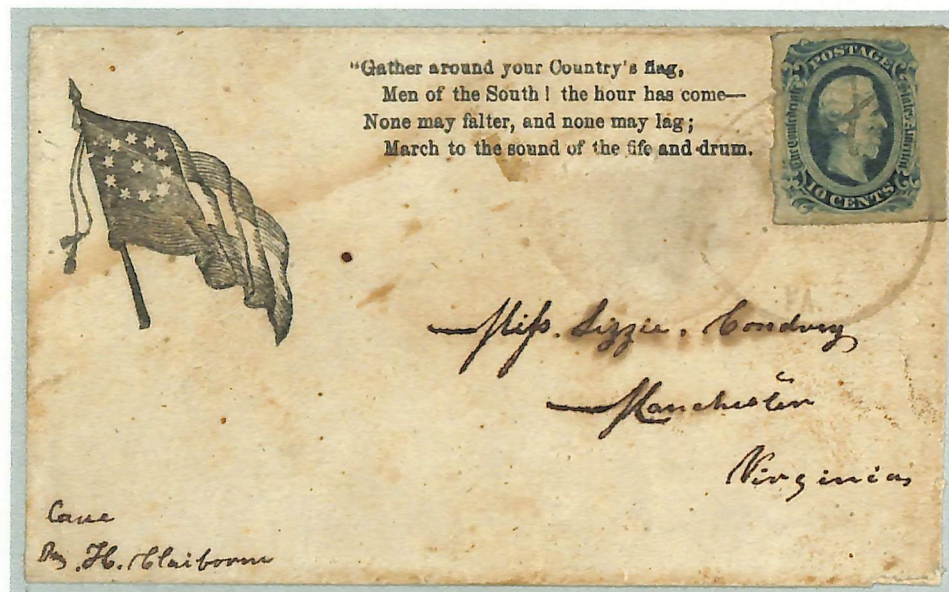 "Gather around your Country's flag,
Men of the South! the hour has come—
None may falter, and none may lag;
March to the sound of the fife and drum.
POSTAGE
The Confederate States of America
10 CENTS
Miss. Lizzie. Condrey
Manchester
Virginia
Care
H. Claiborne